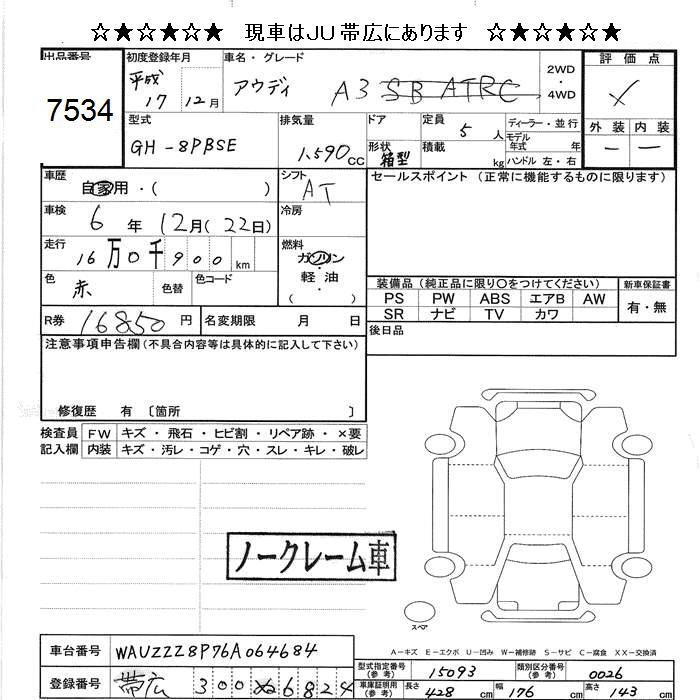 ☆★☆★☆★ 現車はJU帯広にあります ☆★☆★☆★
出品番号 初度登録年月 車名・グレード 評価点
7534 平成 17 12月 アウディ A3 SB ATRC 2WD・4WD
外装 内装
型式 排気量 ドア 定員 5人 ディーラー・並行
GH-8PBSE 1,590CC 形状 箱型 積載 kg モデル年式 年 ハンドル 左・右 ー ー
車歴 自家用・( ) シフト AT セールスポイント (正常に機能するものに限ります)
車検 6年 12月(22日) 冷房
走行 16万0千900km 燃料 ガソリン・軽油 ( )
色 赤 色替 色コード 装備品(純正品に限り○をつけてください) 新車保証書
PS PW ABS エアB AW 有・無
R券 16850円 名変期限 月 日 SR ナビ TV カワ
後日品
注意事項申告欄(不具合内容等は具体的に記入して下さい)
修復歴 有 〔箇所 〕
検査員 FW キズ・飛石・ヒビ割・リペア跡・×要
記入欄 内装 キズ・汚レ・コゲ・穴・スレ・キレ・破レ
ノークレーム車
スペア
A－キズ E－エクボ U－凹み W－補修跡 S－サビ C－腐食 XX－交換済
車台番号 WAUZZZ8P76A064684
型式指定番号(参考) 15093 類別区分番号(参考) 0026
登録番号 帯広 300 ぬ 6824
車庫証明用(参考) 長さ 428cm 幅 176cm 高さ 143cm